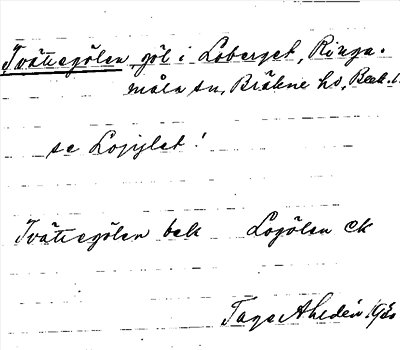 Tvättegölen, göl i Loberget, Ringa-
måla sn, Bräkne hs, Blek. l.
se Logylet!
Tvättegölen bek Logölen ek
Tage Ahldén 19